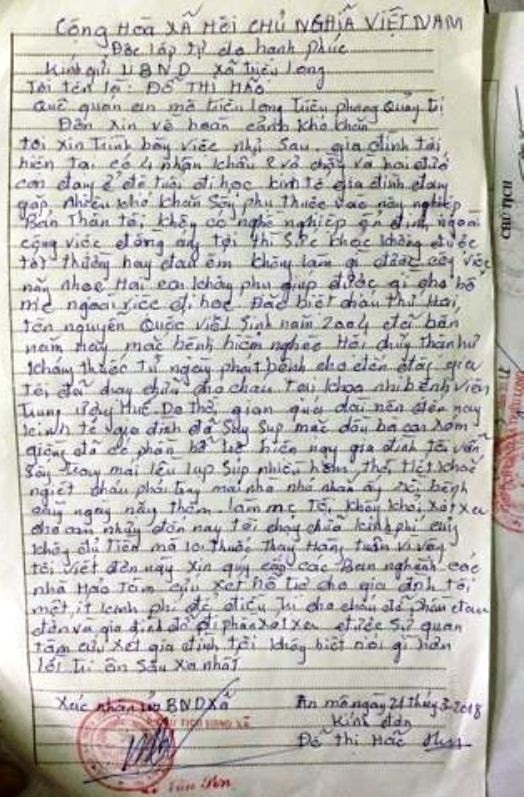 Cộng Hòa XÃ Hội CHỦ NGHĨA VIỆT NAM
Độc lập tự do hạnh Phúc
Kính gửi UBND Xã triệu long
Tôi tên là: ĐỖ THỊ HẢO
Quê quán an mô triệu long triệu phong Quảng trị
Đơn Xin về hoàn cảnh khó khăn
tôi xin trình bày việc như sau. gia đình tôi
hiện tại có 4 nhân khẩu 2 vợ chồng và hai đứa
con đang ở độ tuổi đi học kinh tế gia đình đang
gặp nhiều khó khăn phụ thuộc vào nông nghiệp
Bản Thân tôi không có nghề nghiệp ổn định ngoài
công việc đồng áng tôi thì Sức khỏe không được
tốt thường hay đau ốm không làm gì được công việc
nặng nhọc Hai con không phụ giúp được gì cho bố
mẹ ngoài việc đi học. Đặc biệt cháu thứ Hai
tên nguyễn Quốc Việt Sinh năm 2004
mắc bệnh hiểm nghèo Hội chứng thận hư
kháng thuốc từ ngày phát bệnh cho đến
Tôi đã chạy chữa cho cháu Tại khoa nhi bệnh viện
Trung ương Huế. Do Thời gian quá dài nên đến nay
kinh tế gia đình đã Suy Sụp mặc dầu bà con xóm
giềng đã có phần hỗ trợ hiện nay gia đình tôi vẫn
nhiều hôm thời tiết khắc
nghiệt cháu phải
càng ngày nặng thêm. làm mẹ tôi không khỏi xót xa
cho con nhưng đến nay tôi chạy chữa kinh phí cũng
không đủ tiền mà lo thuốc Thang Hàng tuần vì vậy
tôi viết đơn này xin quý cấp các Ban nghành các
nhà Hảo Tâm cứu xét hỗ trợ cho gia đình tôi
một ít kinh phí để điều trị cho cháu đỡ phần đau
đớn và gia đình đỡ đi phần xót xa được Sự quan
tâm cứu xét gia đình tôi không biết nói gì hơn
lời tri ân Sâu Xa nhất
Xác nhận UBND Xã
An mô ngày 21 tháng 3-2018
CHỦ TỊCH UBND XÃ
Kính đơn
Đỗ Thị Hảo
CHỦ TỊCH